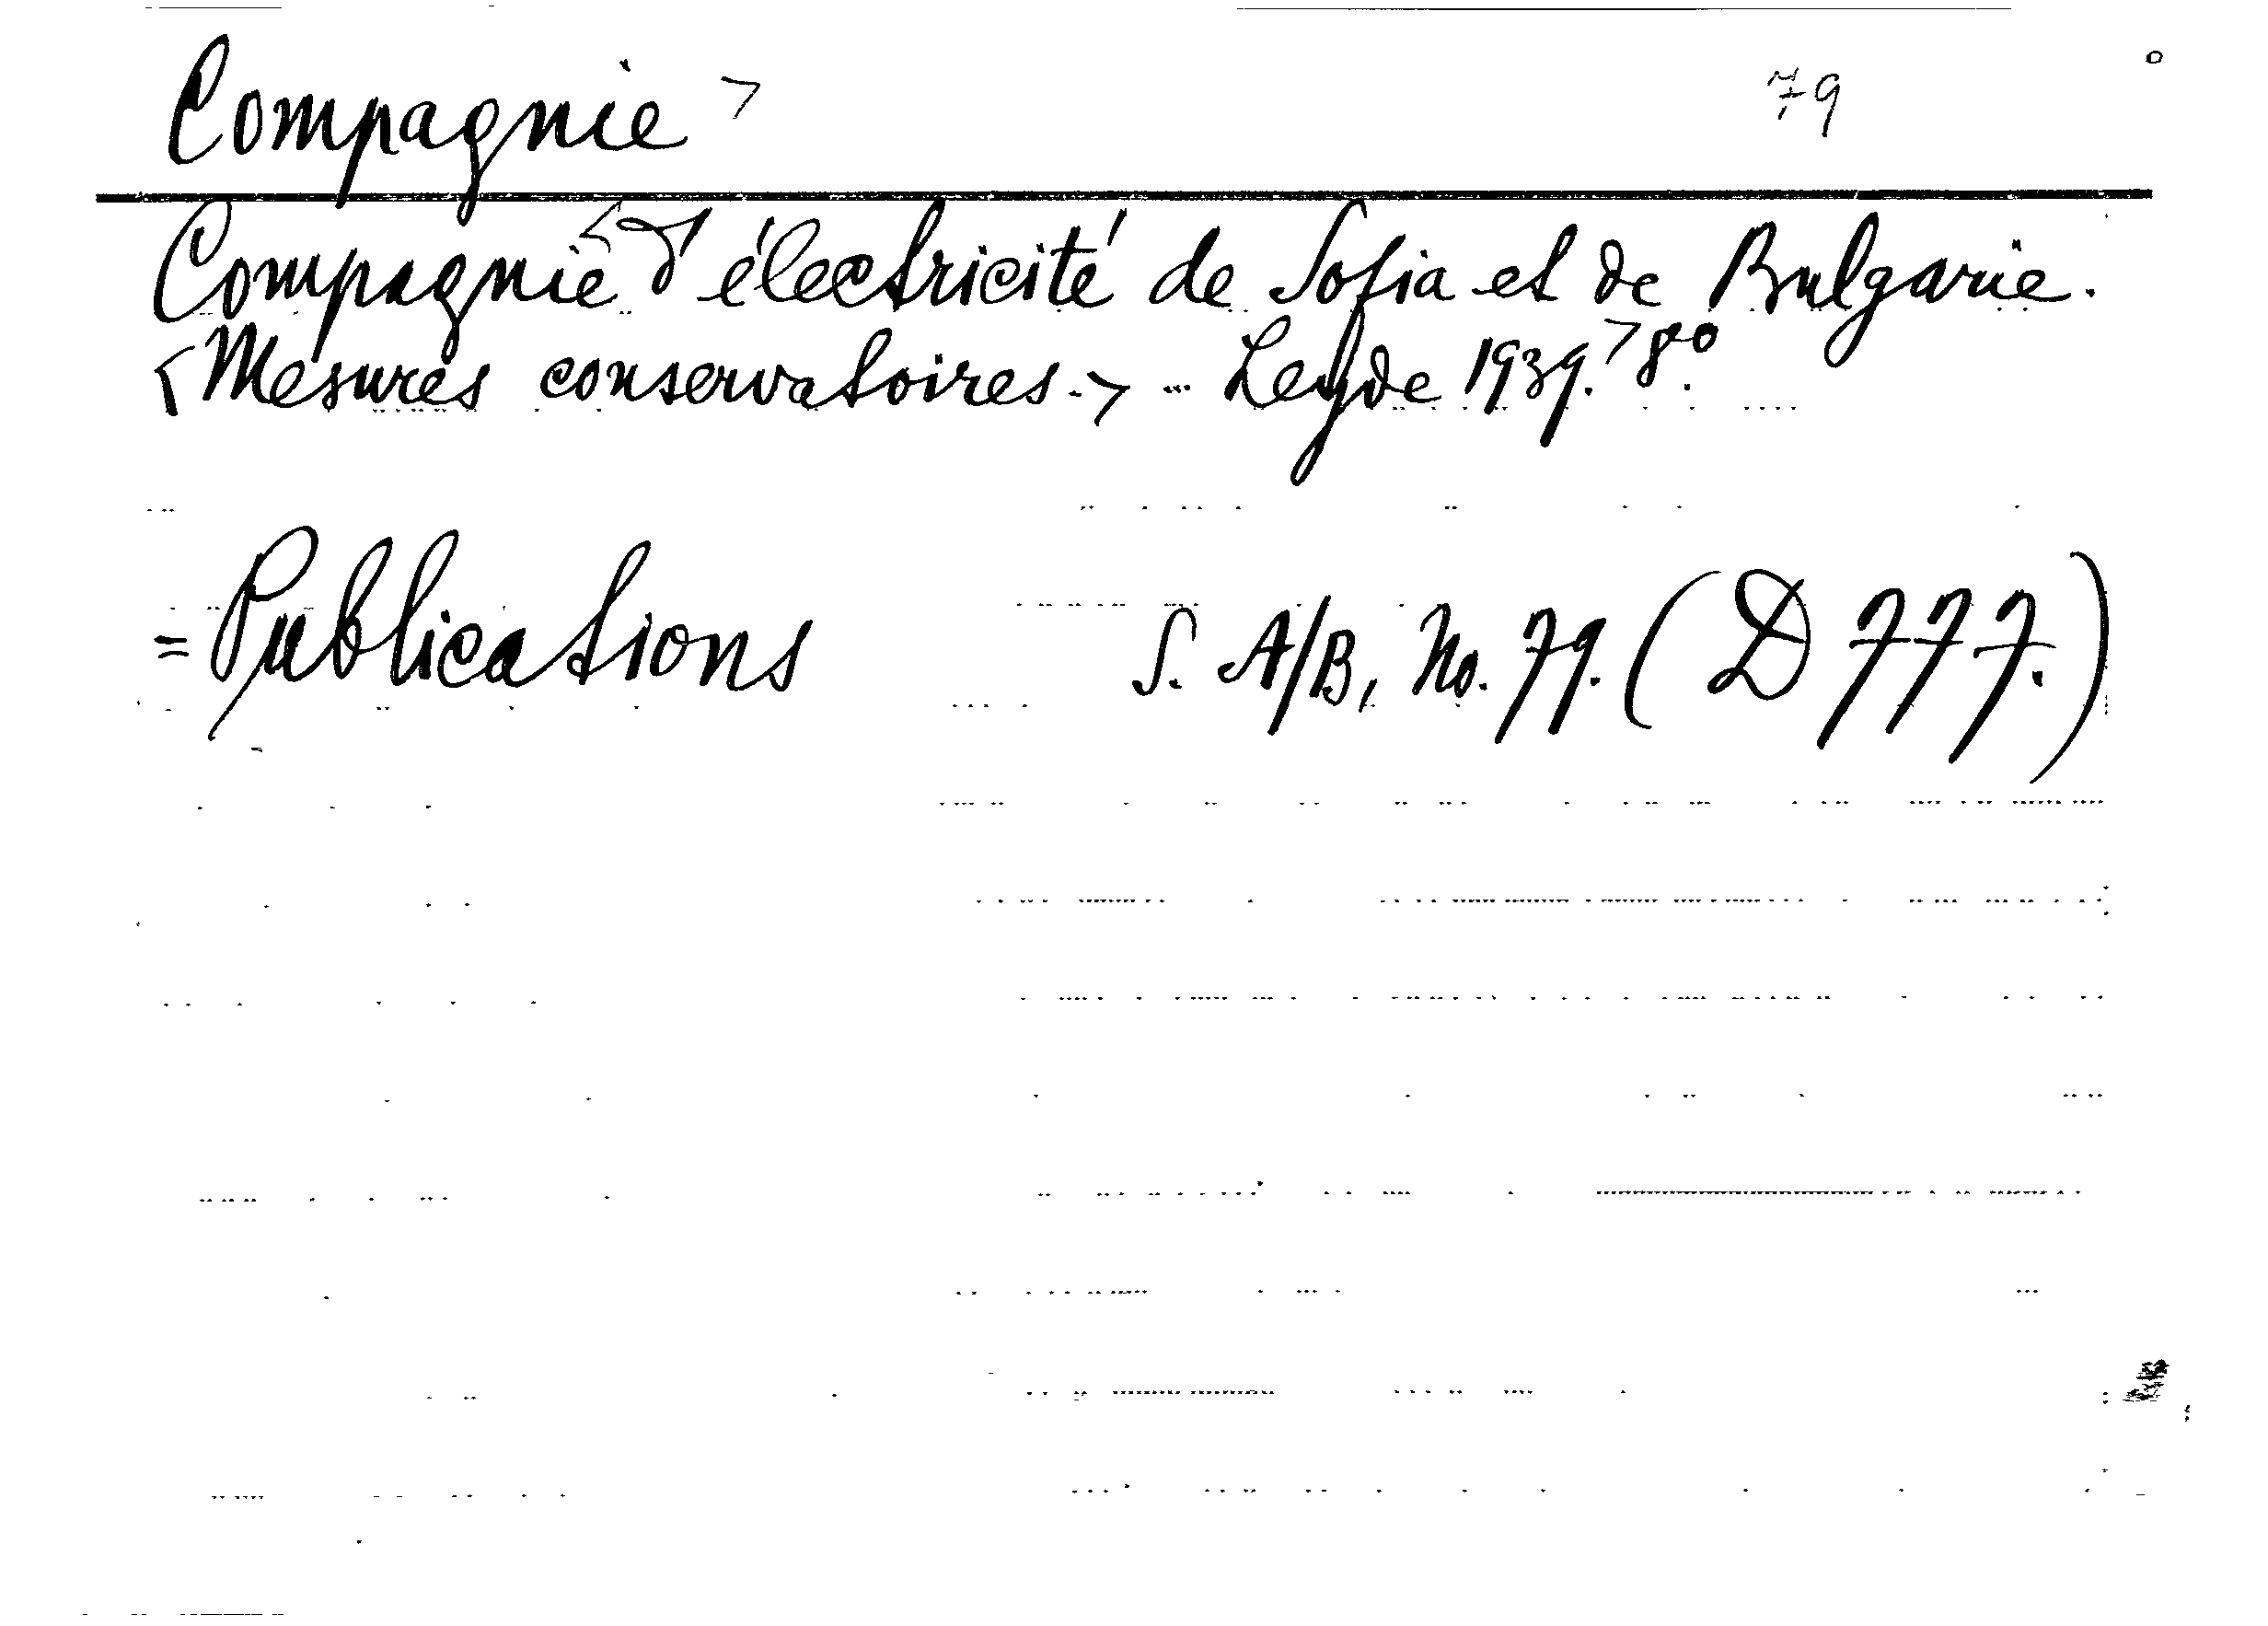 Compagnie > 79
Compagnie <d'électricité de Sofia et de Bulgarie.
<Mesures conservatoires.> - Leyde 1939.> 8°.
= Publications S. A/B, No. 79. (D 777.)